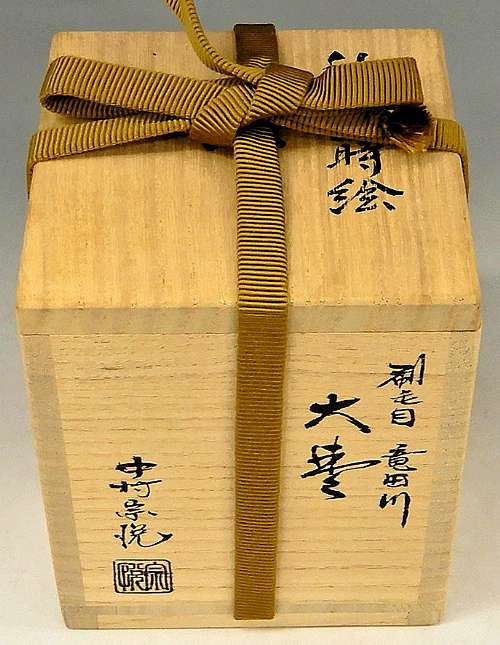 蒔絵
刷毛目 竜田川
大棗
中村宗悦
宗悦